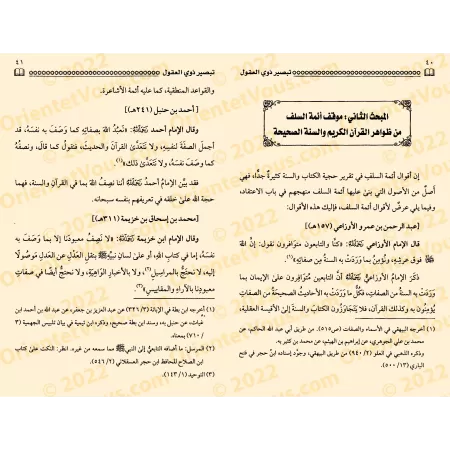 ٤٠
تبصير ذوي العقول
المبحث الثاني: موقف أئمة السلف
من ظواهر القرآن الكريم والسنة الصحيحة
إن أقوال أئمة السلف في تقرير حجية الكتاب والسنة كثيرة جدًّا، فهي
أصل من الأصول التي بنى عليها أئمة السلف منهجهم في باب الاعتقاد،
وفيما يلي عرض لأقوال أئمة السلف، فإليك هذه الأقوال:
[عبد الرحمن بن عمرو الأوزاعي (١٥٧هـ)]
قال الإمام الأوزاعي: «كنَّا والتابعون متوافرون نقول: إنَّ الله
فوق عرشه، ونُؤمِنُ بما وَرَدَتْ به السنة مِن صفاتِه»(١).
ذكر الإمام الأوزاعي أنَّ التابعين مُتوافرون على الإيمان بما
وَرَدَتْ به السنة من الصفات، فكلُّ ما وَرَدَتْ به الأحاديث الصحيحة من صفات
يُؤمِنون به وكذلك القرآن، فلا يتجاوزون الكتاب والسنة إلى الأقيسة العقلية،
(١) أخرجه البيهقي في الأسماء والصفات (ص٥١٥). من طريق أبي عبد الله الحاكم، عن
محمد بن علي الجوهري، عن إبراهيم بن الهيثم، عن محمد بن كثير به.
وذكره الذهبي في العلو (٢/ ٩٤٠) من طريق البيهقي، وجود إسناده ابن حجر في فتح
الباري (١٣/ ٥٠٠).
تبصير ذوي العقول
٤١
والقواعد المنطقية، كما عليه أئمة الأشاعرة.
[أحمد بن حنبل (٢٤١هـ)]
وقال الإمام أحمد: «نَعبُدُ الله بصفاتِه كما وَصَفَ به نفسَهُ، قد
أجملَ الصفةَ لنفسِه، ولا نَتعَدَّى القرآنَ والحديثَ، فنقول كما قالَ، ونصفُهُ
كما وَصَفَ نفسَهُ، ولا نَتعَدَّى ذلك»(١).
فقد بيَّن الإمامُ أحمدُ أننا نصِفُ الله بما في القرآنِ والسنة، فهما
حجة الله على خلقه في تعريفهم بنفسه سبحانه.
[محمد بن إسحاق بن خزيمة (٣١١هـ)]
وقال الإمام ابن خزيمة: «لا نَصِفُ معبودَنا إلا بما وَصَفَ به
نفسَهُ، إما في كتابِ اللهِ، أو على لسانِ نبيِّهِ ﷺ بنقلِ العَدْلِ عن العدلِ مَوصُولًا
إليه، لا نحتجُّ بالمراسيلِ(٢)، ولا بالأخبارِ الوَاهِيةِ، ولا نحتجُّ أيضًا في صفاتِ
معبودِنا بالآراءِ والمقاييسِ»(٣).
(١) أخرجه ابن بطة في الإبانة (٣/ ٣٢٦) عن عبد العزيز بن جعفر، عن عبد الله بن أحمد ابن
غياث، عن حنبل به، وسند ابن بطة صحيح، وذكره ابن تيمية في بيان تلبيس الجهمية (٢
/ ٧١٠) بمعناه.
(٢) المرسل: ما أضافه التابعيُّ إلى النبي ﷺ مما سمعه من غيره. انظر: النكت على كتاب
ابن الصلاح للحافظ ابن حجر العسقلاني (٢/ ٥٤٦).
(٣) التوحيد (١/ ١٤٣).
© 2022